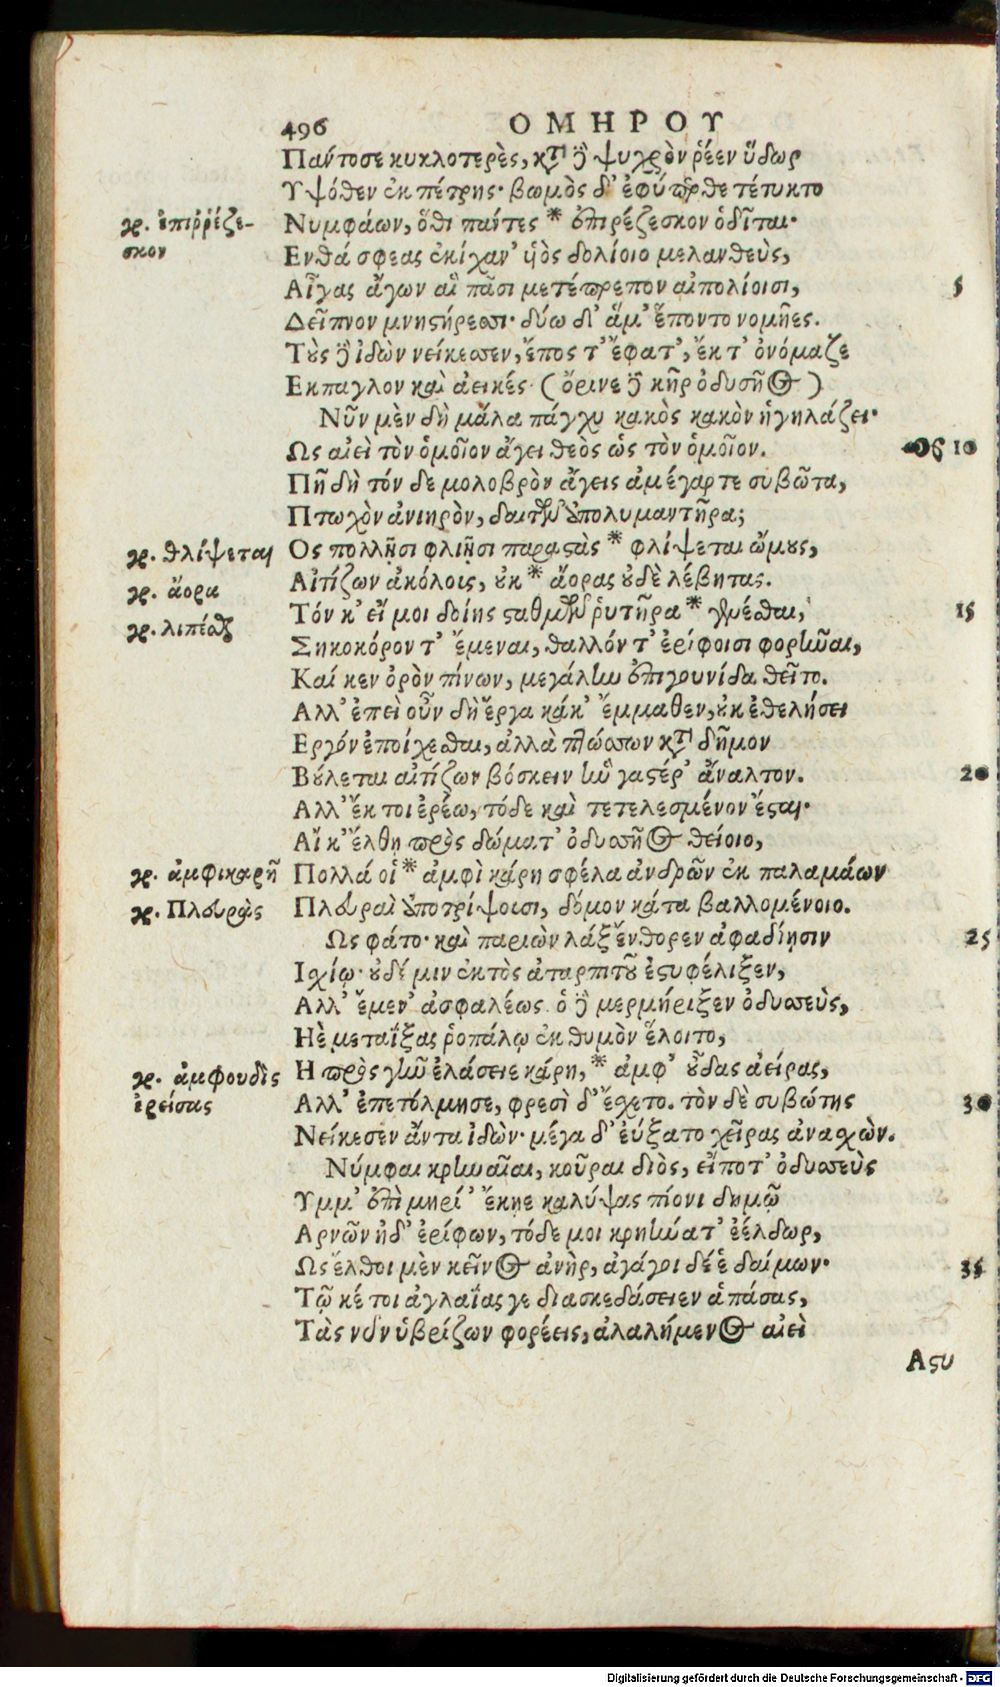 496 ΟΜΗΡΟΥ
Πάντοσε κυκλοτερὲς, κτ̀ ὃ ψυχρὸν ῥέεν ὕδωρ
Υψόθεν ἐκ πέτρης· βωμὸς δ' ἐφύπερθε τέτυκτο
γρ. ἐπιῤῥέζε- Νυμφάων, ὅθι πάντες * ἐπιρέζεσκον ὁδῖται·
σκον Ενθά σφεας ἐκίχαν' ἡὸς δολίοιο μελανθεὺς,
Αἶγας ἄγων αἳ πᾶσι μετέπρεπον αἰπολίοισι, 5
Δεῖπνον μνηστήρεσσι· δύω δ' ἅμ' ἕποντο νομῆες.
Τοὺς δὲ ἰδὼν νείκεσσεν, ἔπος τ' ἔφατ', ἔκ τ' ὀνόμαζε
Εκπαγλον καὶ ἀεικές· (ὄρινε δὲ κῆρ ὀδυσῆος)
Νῦν μὲν δὴ μάλα πάγχυ κακὸς κακὸν ἡγηλάζει·
Ως αἰεὶ τὸν ὁμοῖον ἄγει θεὸς ὡς τὸν ὁμοῖον. 10
Πῆ δὴ τόν δε μολοβρὸν ἄγεις ἀμέγαρτε συβῶτα,
Πτωχὸν ἀνιηρὸν, δαιτῶν ἀπολυμαντῆρα;
γρ. θλίψεται Ος πολλῇσι φλιῇσι παραστὰς * φλίψεται ὤμους,
γρ. ἄορα Αἰτίζων ἀκόλοις, οὐκ * ἄορας οὐδὲ λέβητας.
γρ. λιπέσθ Τόν κ' εἴ μοι δοίης σταθμῶν ῥυτῆρα * γενέσθαι, 15
Σηκοκόρον τ' ἔμεναι, θαλλόν τ' ἐρίφοισι φορῆναι,
Καί κεν ὀρὸν πίνων, μεγάλην ἐπιγουνίδα θεῖτο.
Αλλ' ἐπεὶ οὖν δὴ ἔργα κάκ' ἔμμαθεν, οὐκ ἐθελήσει
Εργόν ἐποίχεσθαι, ἀλλὰ πτώσσων κτ̀ δῆμον
Βούλεται αἰτίζων βόσκειν ἣν γαστέρ' ἄναλτον. 20
Αλλ' ἔκ τοι ἐρέω, τόδε καὶ τετελεσμένον ἔσται·
Αἴ κ' ἔλθῃ πρὸς δώματ' ὀδυσσῆος θείοιο,
γρ. ἀμφικαρῆ Πολλά οἱ * ἀμφὶ κάρη σφέλα ἀνδρῶν ἐκ παλαμάων
γρ. Πλευρὰς Πλευραὶ ἀποτρίψοισι, δόμον κάτα βαλλομένοιο.
Ως φάτο· καὶ παριὼν λὰξ ἔνθορεν ἀφαδίῃσιν 25
Ισχίῳ· οὐδέ μιν ἐκτὸς ἀταρπιτοῦ ἐστυφέλιξεν,
Αλλ' ἔμεν' ἀσφαλέως. ὁ δὲ μερμήριξεν ὀδυσσεὺς,
Ηὲ μεταΐξας ῥοπάλῳ ἐκ θυμὸν ἕλοιτο,
γρ. ἀμφουδὶς Η πρὸς γῆν ἐλάσειε κάρη, * ἀμφ' οὖδας ἀείρας,
ἐρείσας Αλλ' ἐπετόλμησε, φρεσὶ δ' ἔσχετο. τὸν δὲ συβώτης 30
Νείκεσεν ἄντα ἰδὼν· μέγα δ' εὔξατο χεῖρας ἀνασχὼν.
Νύμφαι κρηναῖαι, κοῦραι διὸς, εἴποτ' ὀδυσσεὺς
Υμμ' ἐπὶ μηρί' ἔκηε καλύψας πίονι δημῷ
Αρνῶν ἠδ' ἐρίφων, τόδε μοι κρηήνατ' ἐέλδωρ,
Ως ἔλθοι μὲν κεῖνος ἀνὴρ, ἀγάγοι δέ ἑ δαίμων· 35
Τῷ κέ τοι ἀγλαΐας γε διασκεδάσειεν ἁπάσας,
Τὰς νῦν ὑβρίζων φορέεις, ἀλαλήμενος αἰεὶ
Αστυ
Digitalisierung gefördert durch die Deutsche Forschungsgemeinschaft - DFG